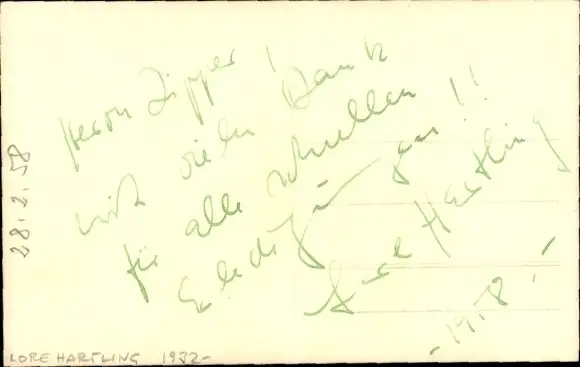 Herrn Zipper!
mit vielen Dank
für alle schnellen
Erledigungen!!
Lore Hartling
-1958-
28.2.58
LORE HARTLING 1932-